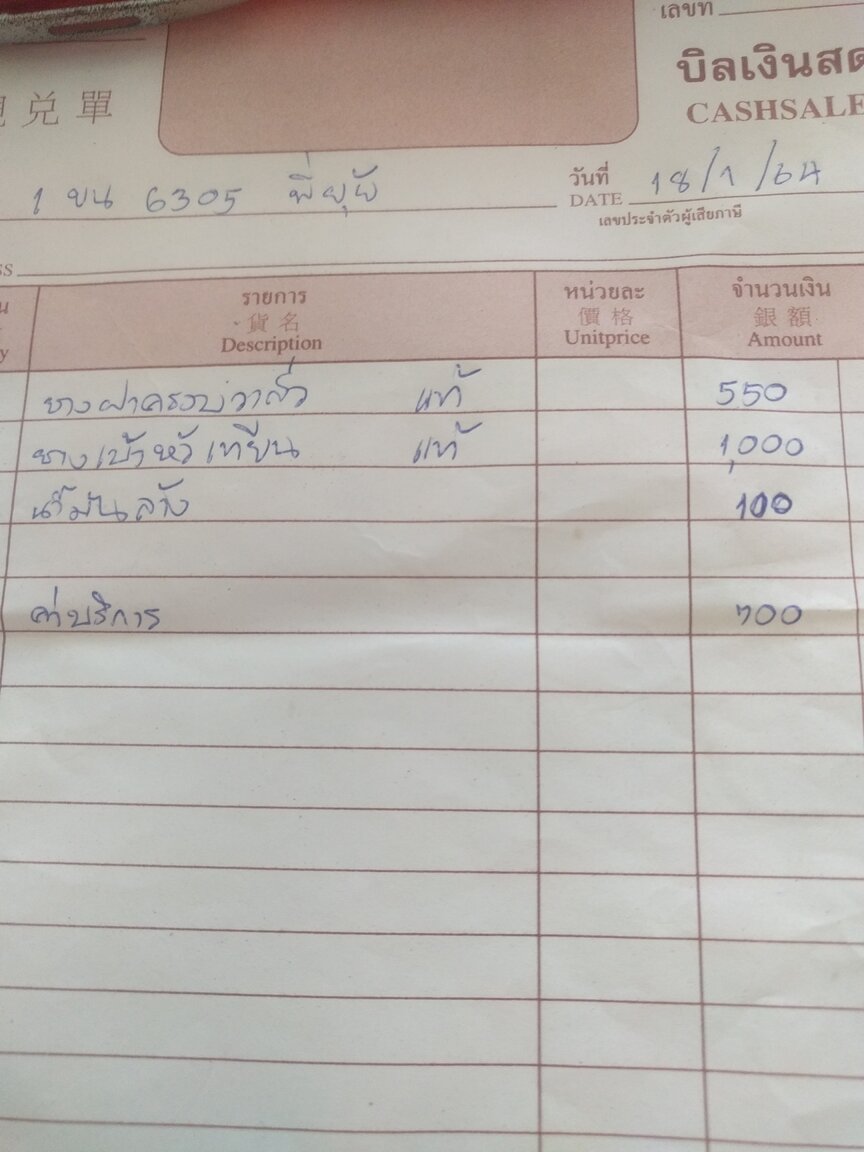 เลขที่
บิลเงินสด
兑單
CASHSALE
1 ขน 6305 พี่ยุ้ย
วันที่
DATE 18/1/64
เลขประจำตัวผู้เสียภาษี
SS
รายการ หน่วยละ จำนวนเงิน
貨名 價格 銀額
y Description Unitprice Amount
ยางฝาครอบวาล์ว แท้ 550
ยางเบ้าหัวเทียน แท้ 1,000
น้ำมันล้าง 100
ค่าบริการ 700